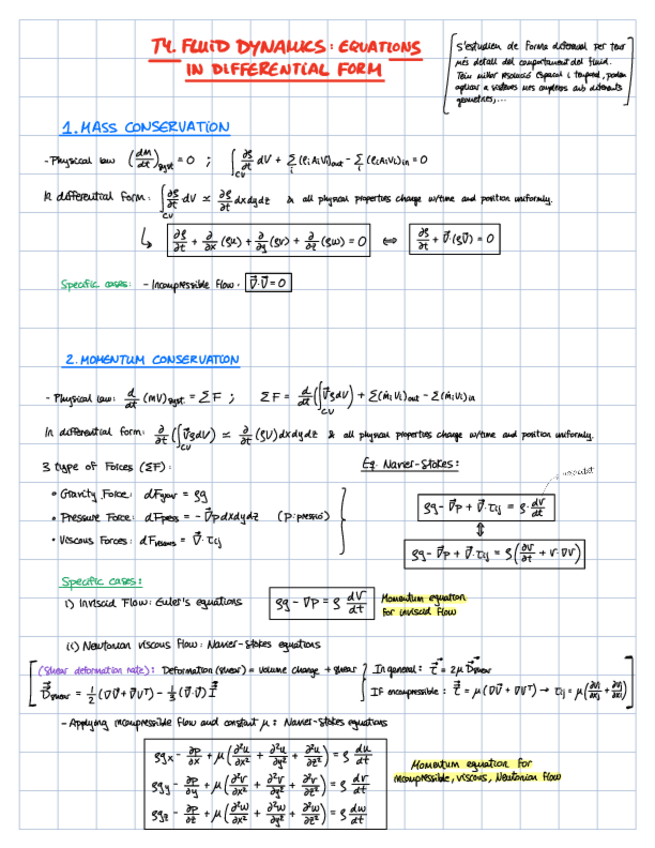 T4. FLUID DYNAMICS: EQUATIONS
IN DIFFERENTIAL FORM
S'estudien de forma diferencial per tenir
més detall del comportament del fluid.
Tenim millor resolució espacial i temporal, poden
aplicar a sistemes més complexes amb diferents
geometries,...
1. MASS CONSERVATION
- Physical law (dM/dt)syst = 0 ; ∫CV ∂ρ/∂t dV + Σi (ρiAiVi)out - Σi (ρiAiVi)in = 0
In differential form: ∫CV ∂ρ/∂t dV ≃ ∂ρ/∂t dxdydz & all physical properties change w/time and position uniformly.
↳ ∂ρ/∂t + ∂/∂x (ρu) + ∂/∂y (ρv) + ∂/∂z (ρw) = 0 ⇔ ∂ρ/∂t + ∇⃗·(ρV⃗) = 0
Specific cases: - Incompressible flow · ∇⃗·V⃗ = 0
2. MOMENTUM CONSERVATION
- Physical law: d/dt (mV)syst. = ΣF ; ΣF = d/dt (∫CV V⃗ρdV) + Σ(ṁiVi)out - Σ(ṁiVi)in
In differential form: ∂/∂t (∫CV V⃗ρdV) ≃ ∂/∂t (ρV) dxdydz & all physical properties change w/time and position uniformly.
3 type of Forces (ΣF):
• Gravity Force: dFgrav = ρg
• Pressure Force: dFpress = - ∇⃗p dxdydz (p: pressió)
• Viscous Forces: dFviscous = ∇⃗·τij
Eq. Navier-Stokes:
ρg - ∇⃗p + ∇⃗·τij = ρ· dV/dt
⇕
ρg - ∇⃗p + ∇⃗·τij = ρ(∂V/∂t + V·∇V)
Specific cases:
i) Inviscid Flow: Euler's equations
ρg - ∇P = ρ dV/dt
Momentum equation
for inviscid flow
ii) Newtonian viscous flow: Navier-Stokes equations
(Shear deformation rate): Deformation (shear) = volume change + shear
D⃗shear = 1/2 (∇V⃗ + ∇V^T) - 1/3 (∇⃗·V⃗) I⃗
In general: τ⃗ = 2μ D⃗shear
If incompressible: τ⃗ = μ(∇V⃗ + ∇V^T) → τij = μ(∂Vi/∂xj + ∂Vj/∂xi)
- Applying incompressible flow and constant μ: Navier-Stokes equations
ρgx - ∂p/∂x + μ(∂²u/∂x² + ∂²u/∂y² + ∂²u/∂z²) = ρ du/dt
ρgy - ∂p/∂y + μ(∂²v/∂x² + ∂²v/∂y² + ∂²v/∂z²) = ρ dv/dt
ρgz - ∂p/∂z + μ(∂²w/∂x² + ∂²w/∂y² + ∂²w/∂z²) = ρ dw/dt
Momentum equation for
incompressible, viscous, Newtonian flow